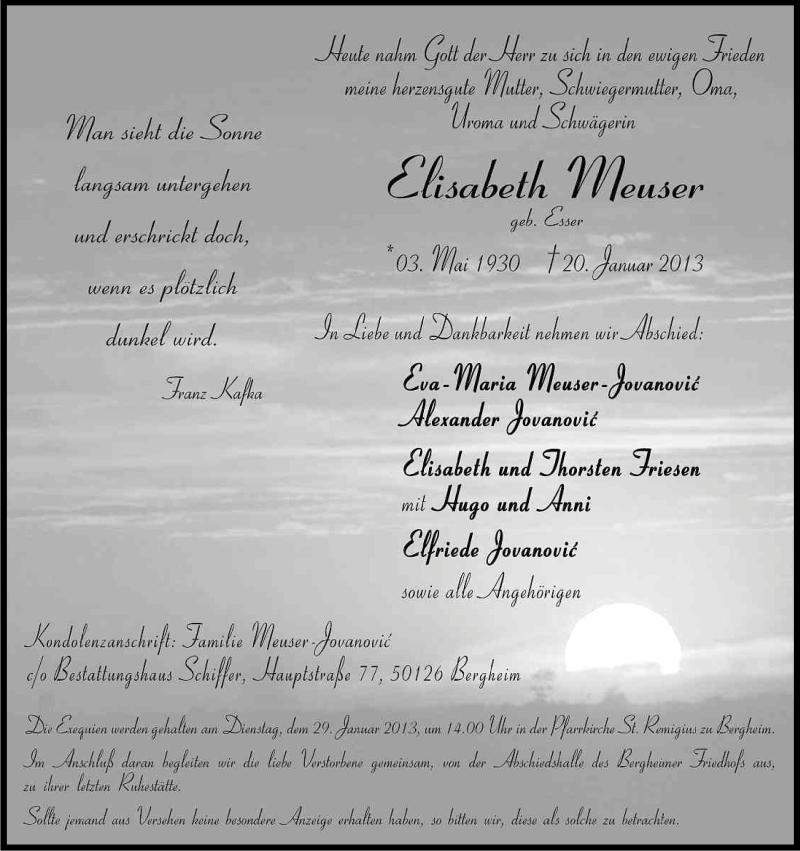 Heute nahm Gott der Herr zu sich in den ewigen Frieden
meine herzensgute Mutter, Schwiegermutter, Oma,
Uroma und Schwägerin
Man sieht die Sonne
langsam untergehen
und erschrickt doch,
wenn es plötzlich
dunkel wird.
Franz Kafka
Elisabeth Meuser
geb. Esser
*03. Mai 1930 †20. Januar 2013
In Liebe und Dankbarkeit nehmen wir Abschied:
Eva-Maria Meuser-Jovanović
Alexander Jovanović
Elisabeth und Thorsten Friesen
mit Hugo und Anni
Elfriede Jovanović
sowie alle Angehörigen
Kondolenzanschrift: Familie Meuser-Jovanović
c/o Bestattungshaus Schiffer, Hauptstraße 77, 50126 Bergheim
Die Exequien werden gehalten am Dienstag, dem 29. Januar 2013, um 14.00 Uhr in der Pfarrkirche St. Remigius zu Bergheim.
Im Anschluß daran begleiten wir die liebe Verstorbene gemeinsam, von der Abschiedshalle des Bergheimer Friedhofs aus,
zu ihrer letzten Ruhestätte.
Sollte jemand aus Versehen keine besondere Anzeige erhalten haben, so bitten wir, diese als solche zu betrachten.